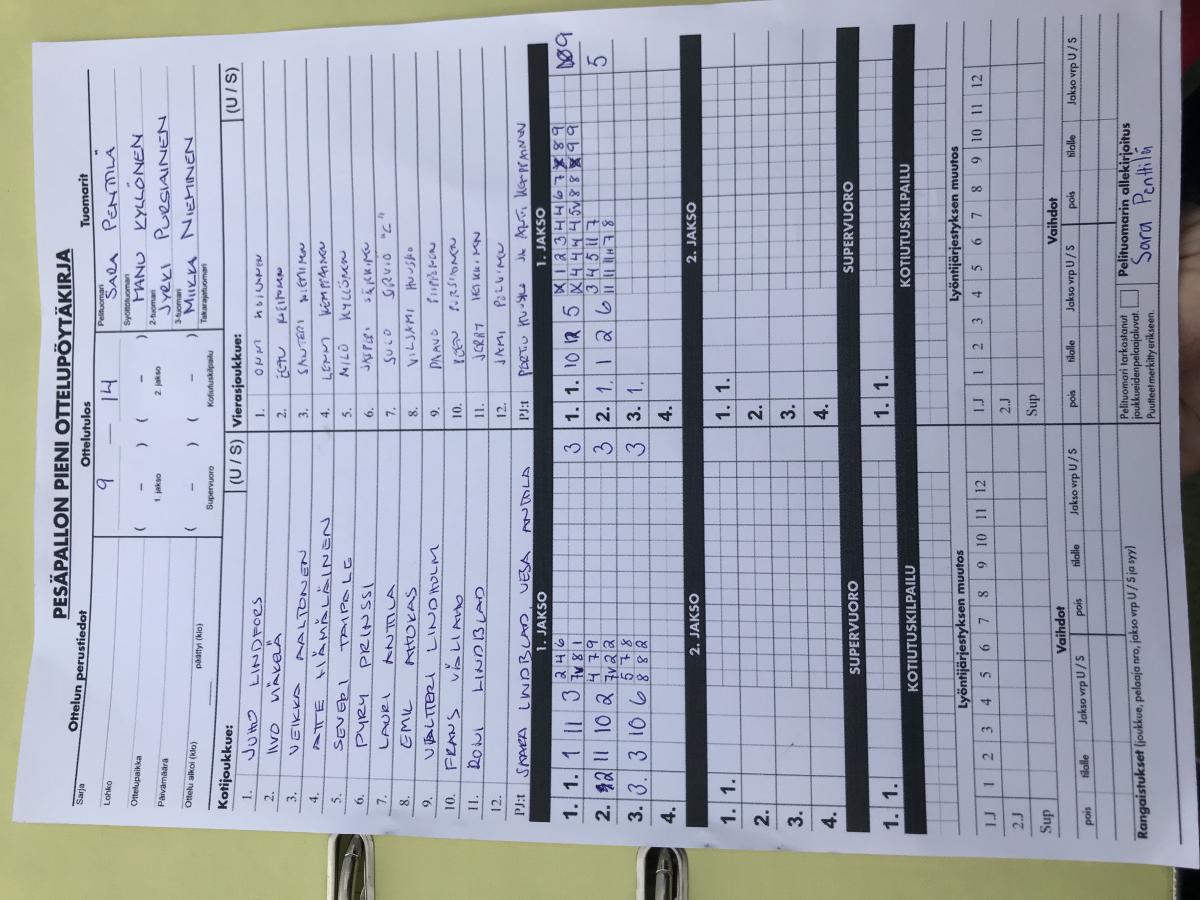 PESÄPALLON PIENI OTTELUPÖYTÄKIRJA
Ottelun perustiedot
Ottelutulos
Tuomarit
Sarja
Lohko
Ottelupaikka
Päivämäärä
Ottelu alkoi (klo)
päättyi (klo)
9 – 14
( – ) ( – )
1. jakso
2. jakso
( – ) ( – )
Supervuoro
Kotiutuskilpailu
Pelituomari
SARA PENTTILÄ
Syöttötuomari
MANU KYLLÖNEN
2-tuomari
JYRKI PURSIAINEN
3-tuomari
MIIKKA NIEMINEN
Takarajatuomari
Kotijoukkue:
(U / S)
1. JUHO LINDFORS
2. IIVO MÄKELÄ
3. VEIKKA AALTONEN
4. ATTE HÄMÄLÄINEN
5. SEVERI TAIPALE
6. PYRY PRINSSI
7. LAURI ANTTILA
8. EMIL AHOKAS
9. VALTTERI LINDHOLM
10. FRANS VÄLIAHO
11. RONI LINDBLAD
12.
PJ:t SAARA LINDBLAD, VESA ANTTILA
Vierasjoukkue:
(U / S)
1. ONNI
2. EETU
3. SANTERI NIEMINEN
4. LENNI KEMPPAINEN
5. MILO KYLLÖNEN
6. JASPERI
7. SULO "C"
8. VILJAMI HUSKO
9. PAAVO PIIPPONEN
10. PEPE PURSIAINEN
11. HEIKKINEN
12. JAMI
PJ:t PERTU HUSKO JA ANTI KEMPPAINEN
1. JAKSO
1. 1. 1 11 3
2 4 6
7V 8 1
3
2. 11 10 2
4 7 9
7V 2 2
3
3. 3. 3 10 6
5 7 8
8 8 2
3
4.
1. JAKSO
1. 1. 10 12 5
X 1 2 3 4 4 6 7 X 8 9
X 4 4 4 4 5V 8 8 X 9 9
9
2. 1. 1 2 6
3 4 5 11 7
11 11 11 H 7 8
5
3. 1.
4.
2. JAKSO
1. 1.
2.
3.
4.
2. JAKSO
1. 1.
2.
3.
4.
SUPERVUORO
1. 1.
SUPERVUORO
1. 1.
KOTIUTUSKILPAILU
KOTIUTUSKILPAILU
Lyöntijärjestyksen muutos
1.J 1 2 3 4 5 6 7 8 9 10 11 12
2.J
Sup
Lyöntijärjestyksen muutos
1.J 1 2 3 4 5 6 7 8 9 10 11 12
2.J
Sup
Vaihdot
pois tilalle Jakso vrp U / S pois tilalle Jakso vrp U / S
Vaihdot
pois tilalle Jakso vrp U / S pois tilalle Jakso vrp U / S
Rangaistukset (joukkue, pelaaja nro, jakso vrp U / S ja syy)
Pelituomari tarkastanut
joukkueiden pelaajaluvat.
Puutteet merkitty erikseen.
Pelituomarin allekirjoitus
Sara Penttilä